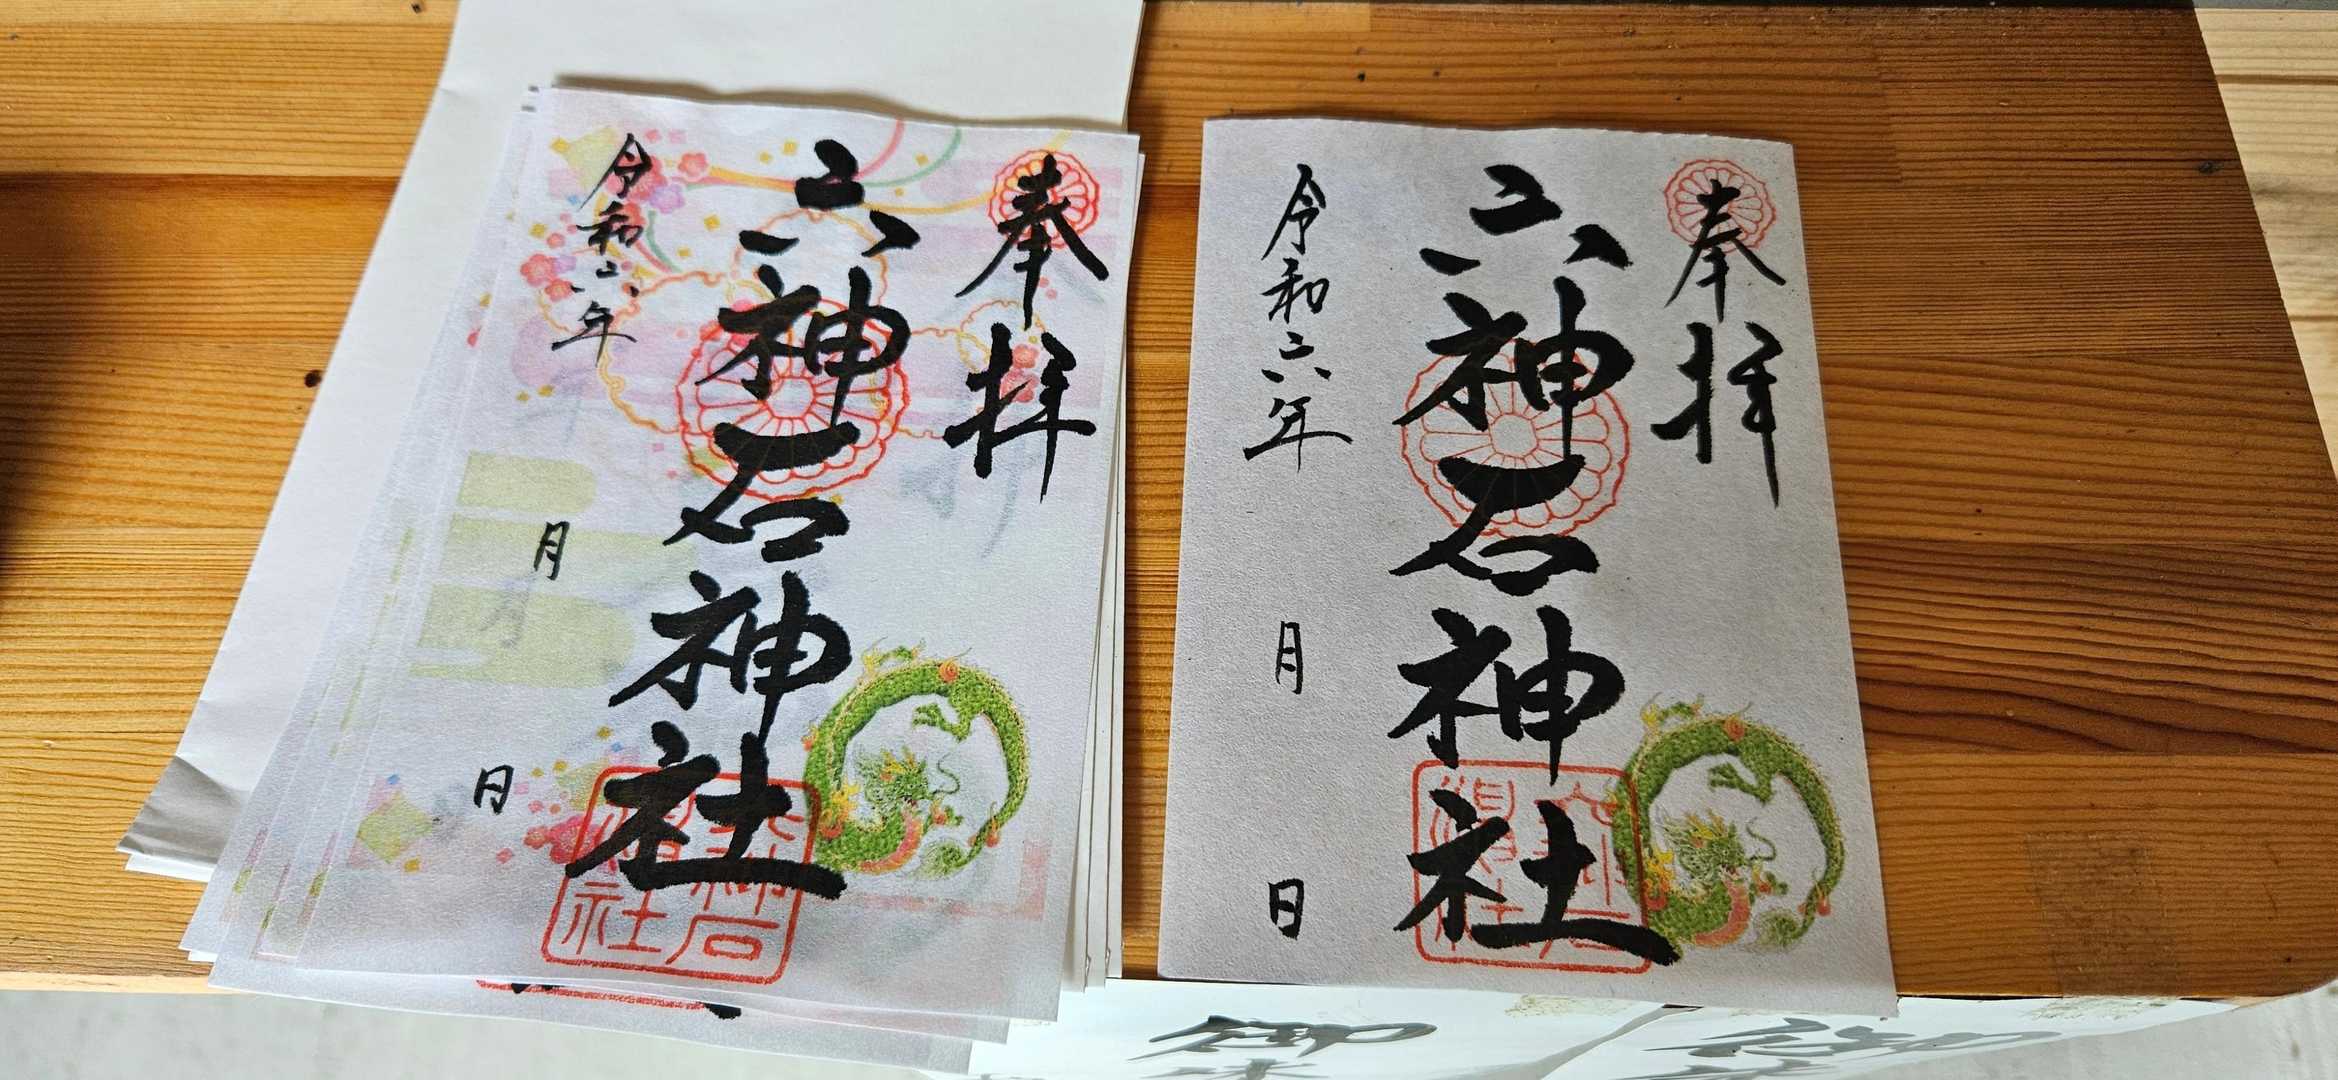 奉拝
六神石神社
令和六年
月
日
奉拝
六神石神社
令和六年
月
日